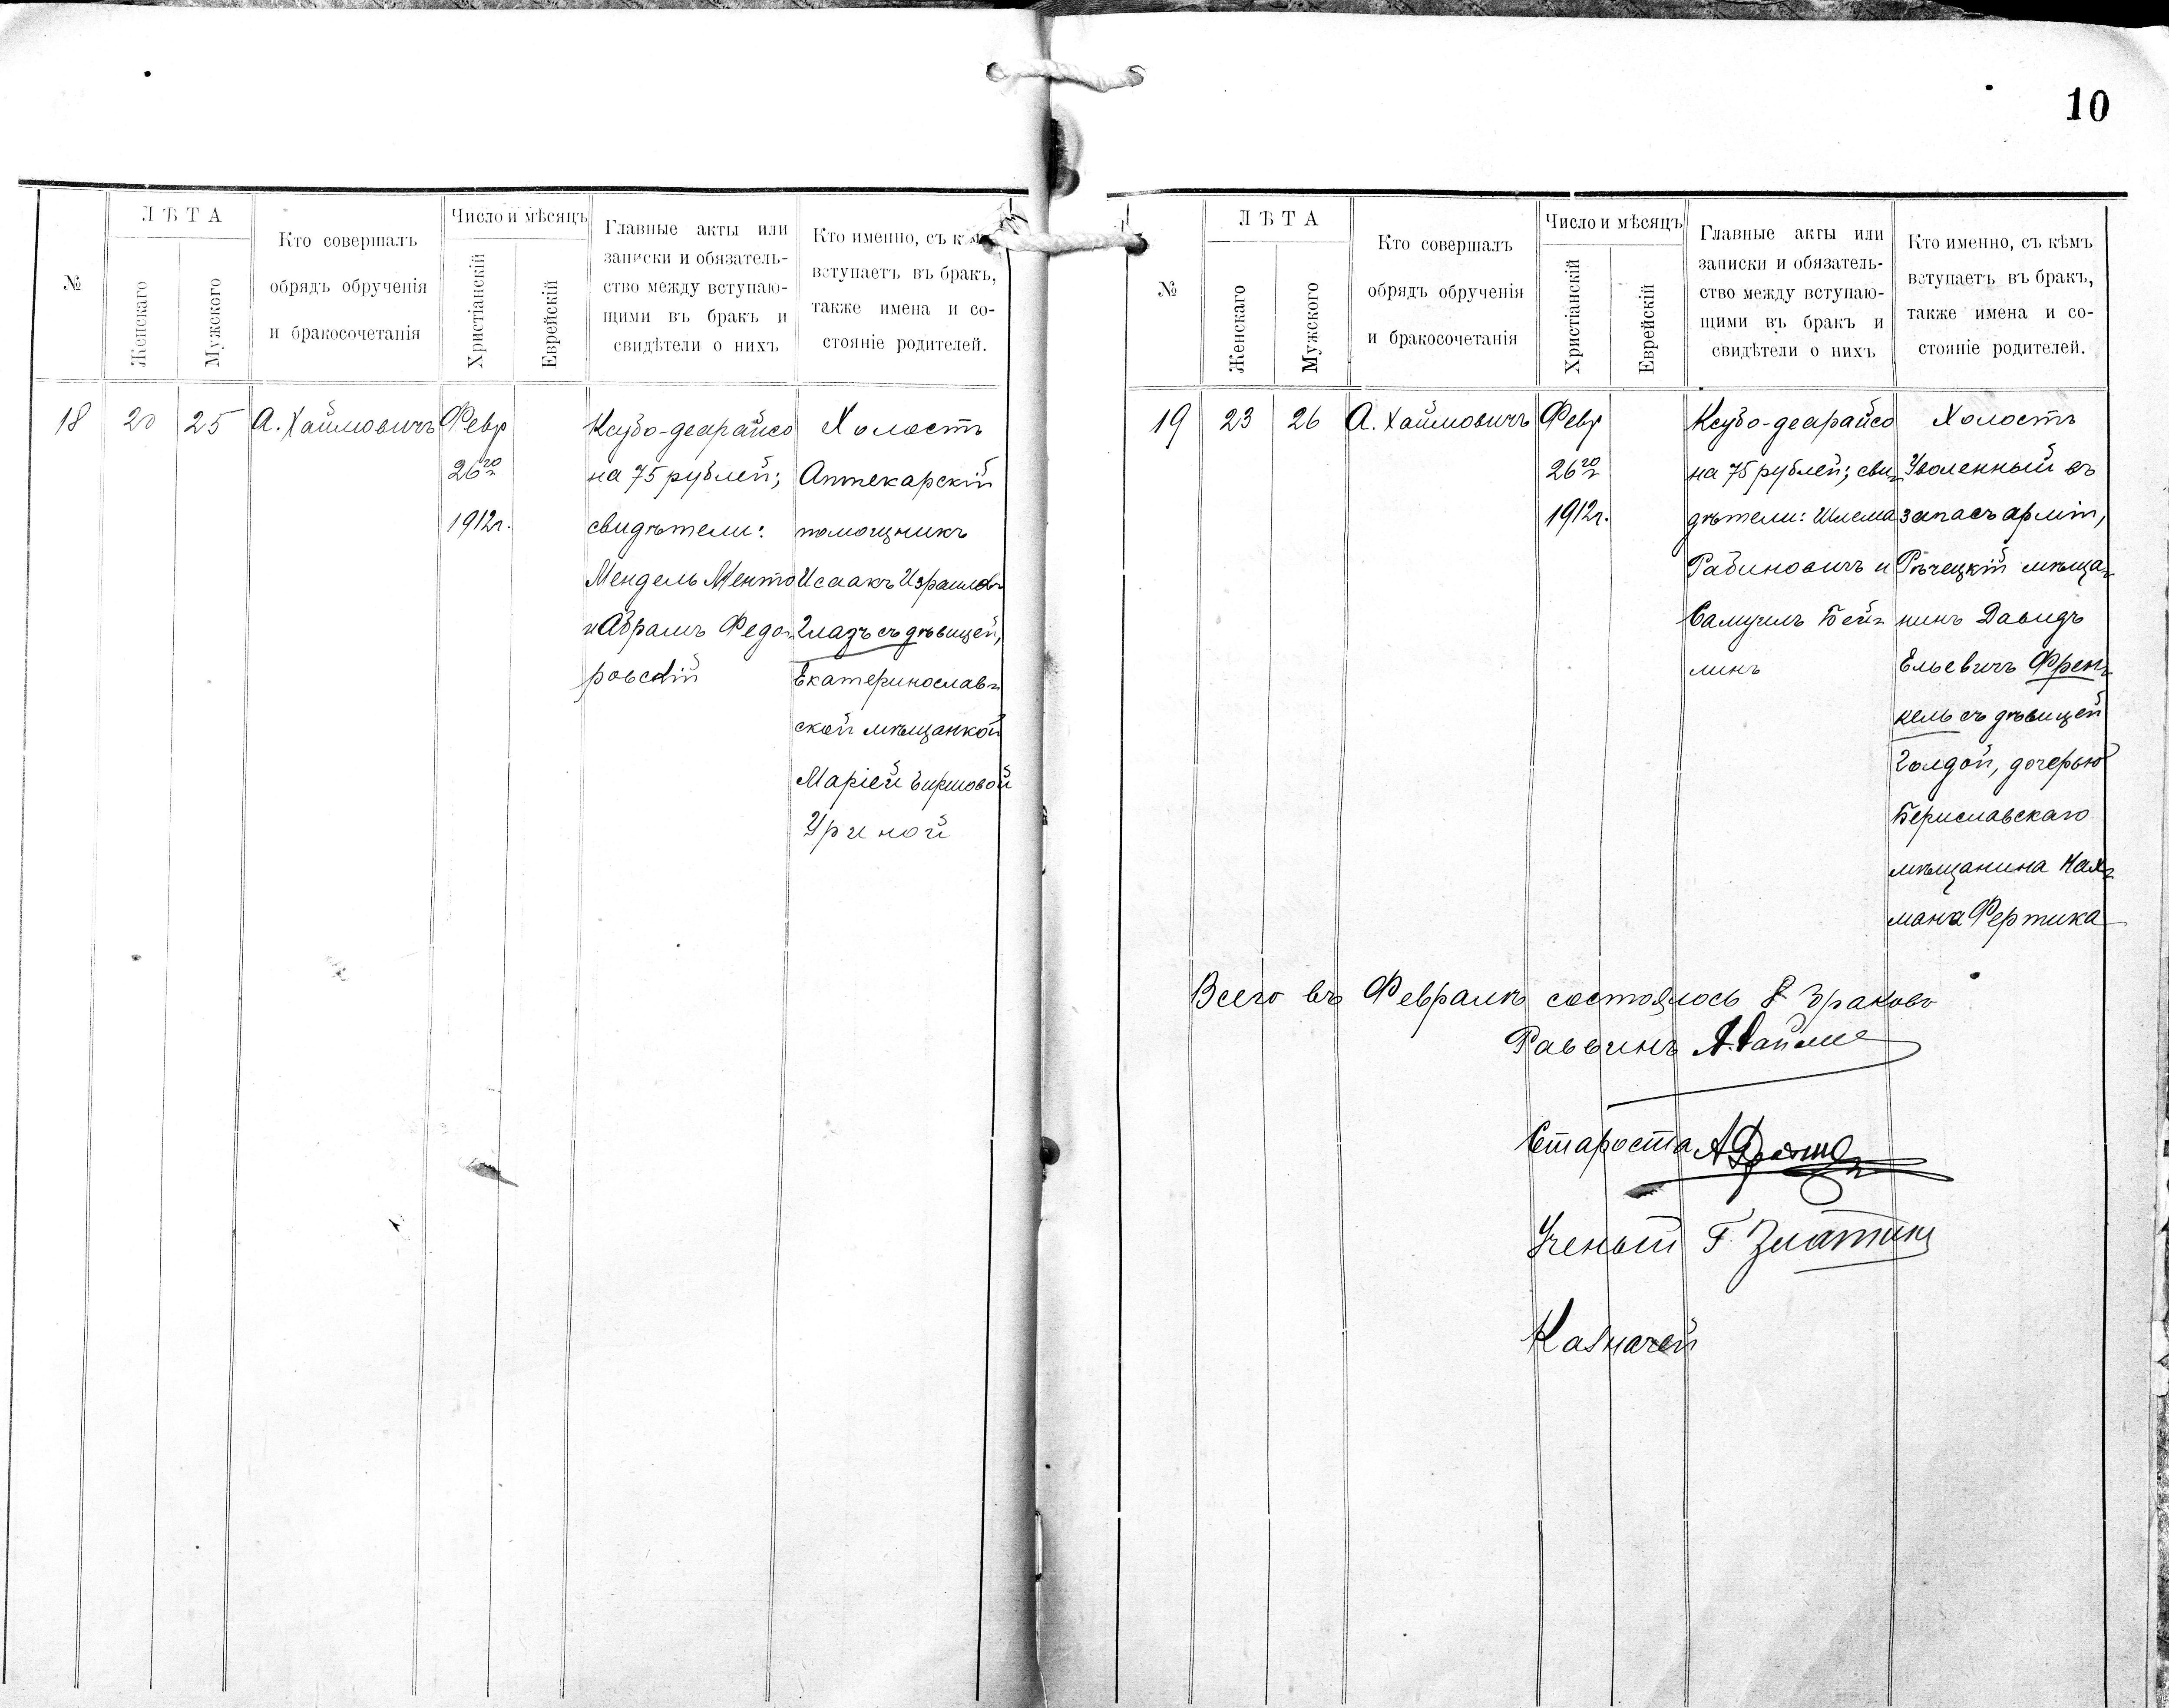 10
№
ЛѢТА
Женскаго
Мужского
Кто совершалъ
обрядъ обрученія
и бракосочетанія
Число и мѣсяцъ
Христіанскій
Еврейскій
Главные акты или
записки и обязатель-
ство между вступаю-
щими въ бракъ и
свидѣтели о нихъ
Кто именно, съ кѣмъ
вступаетъ въ бракъ,
также имена и со-
стояніе родителей.
18
20
25
А. Хаймовичъ
Февр
26го
1912г.
Ксубо-деарайсо
на 75 рублей;
свидѣтели:
Мендель Менто
и Абрамъ Федо-
ровскій
Холостъ
Аптекарскій
помощникъ
Исаакъ Израилов
Глазъ съ дѣвицей,
Екатеринослав-
ской мѣщанкой
Маріей Гиршовой
Уриной
№
ЛѢТА
Женскаго
Мужского
Кто совершалъ
обрядъ обрученія
и бракосочетанія
Число и мѣсяцъ
Христіанскій
Еврейскій
Главные акты или
записки и обязатель-
ство между вступаю-
щими въ бракъ и
свидѣтели о нихъ
Кто именно, съ кѣмъ
вступаетъ въ бракъ,
также имена и со-
стояніе родителей.
19
23
26
А. Хаймовичъ
Февр
26го
1912г.
Ксубо-деарайсо
на 75 рублей; сви-
дѣтели: Шлема
Рабиновичъ и
Самуилъ Бей-
линъ
Холостъ
Уволенный въ
запасъ арміи,
Рѣчецкій мѣща-
нинъ Давидъ
Ельевичъ Френ-
кель съ дѣвицей
Голдой, дочерью
Бериславскаго
мѣщанина Нах-
мана Фертика
Всего въ Февралѣ состоялось 8 браковъ
Раввинъ А.
Староста А
Ученый Г. Златкин
Казначей